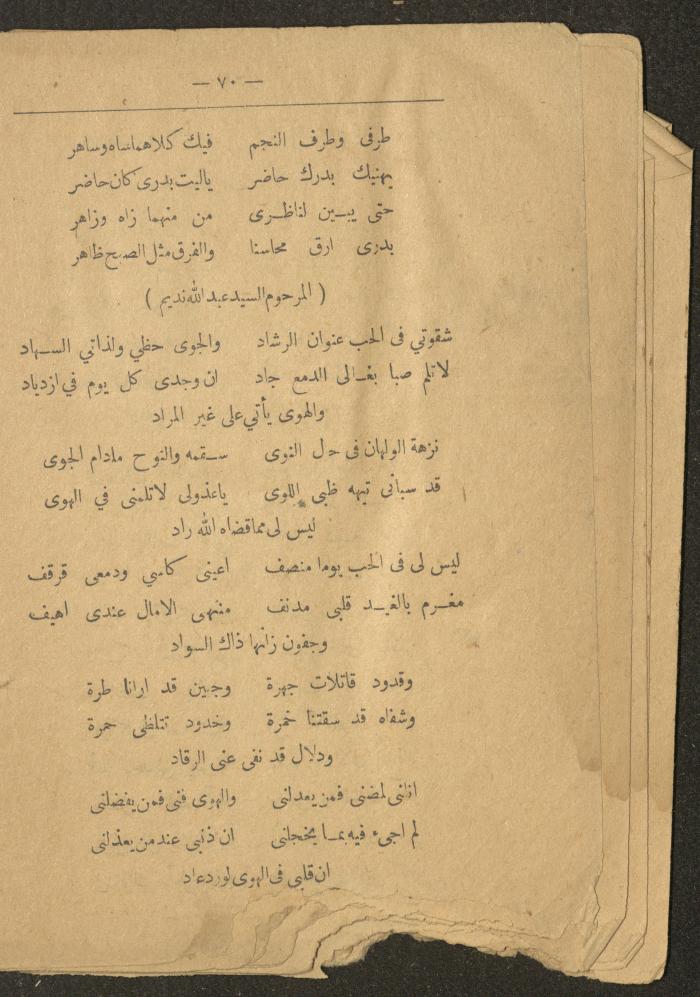 — ٧٠ —
طرفى وطرف النجم فيك كلاهما ساه وساهر
يهنيك بدرك حاضر ياليت بدرى كان حاضر
حتى يبين لناظرى من منهما زاه وزاهر
بدرى ارق محاسنا والفرق مثل الصبح ظاهر
( المرحوم السيد عبد الله نديم )
شقوتي فى الحب عنوان الرشاد والجوى حظي ولذاتي السهاد
لاتلم صبا بغالى الدمع جاد ان وجدى كل يوم في ازدياد
والهوى يأتي على غير المراد
نزهة الولهان فى حال النوى سقمه والنوح مادام الجوى
قد سبانى تيهه ظبي اللوى ياعذولى لاتلمنى في الهوى
ليس لى مما قضاه الله راد
ليس لى فى الحب يوما منصف اعينى كاسي ودمعى قرقف
مغرم بالغيد قلبى مدنف منتهى الامال عندى اهيف
وجفون زانها ذاك السواد
وقدود قاتلات جهرة وجبين قد ارانا طرة
وشفاه قد سقتنا خمرة وخدود تتلظى حمرة
ودلال قد نفى عنى الرقاد
اننى لمضنى فمن يعدلنى والهوى فنى فمن يفضلنى
لم اجىء فيه بما يخجلنى ان ذنبى عند من يعذلنى
ان قلبى فى الهوى لورد عاد